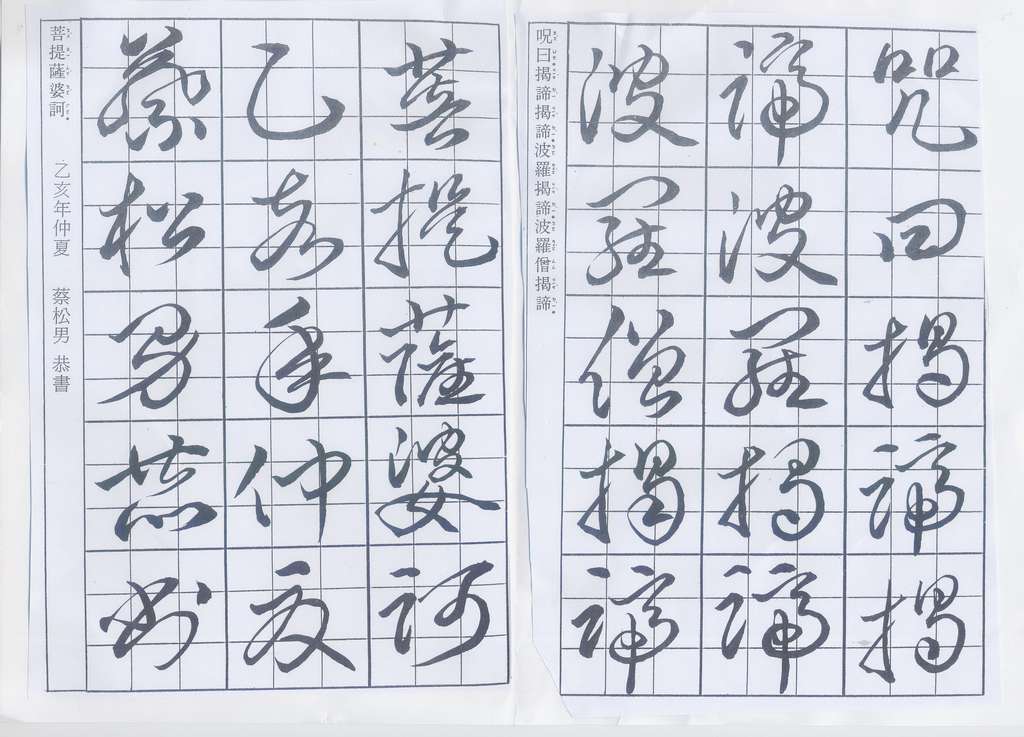 呪曰揭諦揭諦波羅揭諦波羅僧揭諦
呪曰揭諦揭
諦波羅揭諦
波羅僧揭諦
菩提薩婆訶 乙亥年仲夏 蔡松男 恭書
菩提薩婆訶
乙亥年仲夏
蔡松男恭書